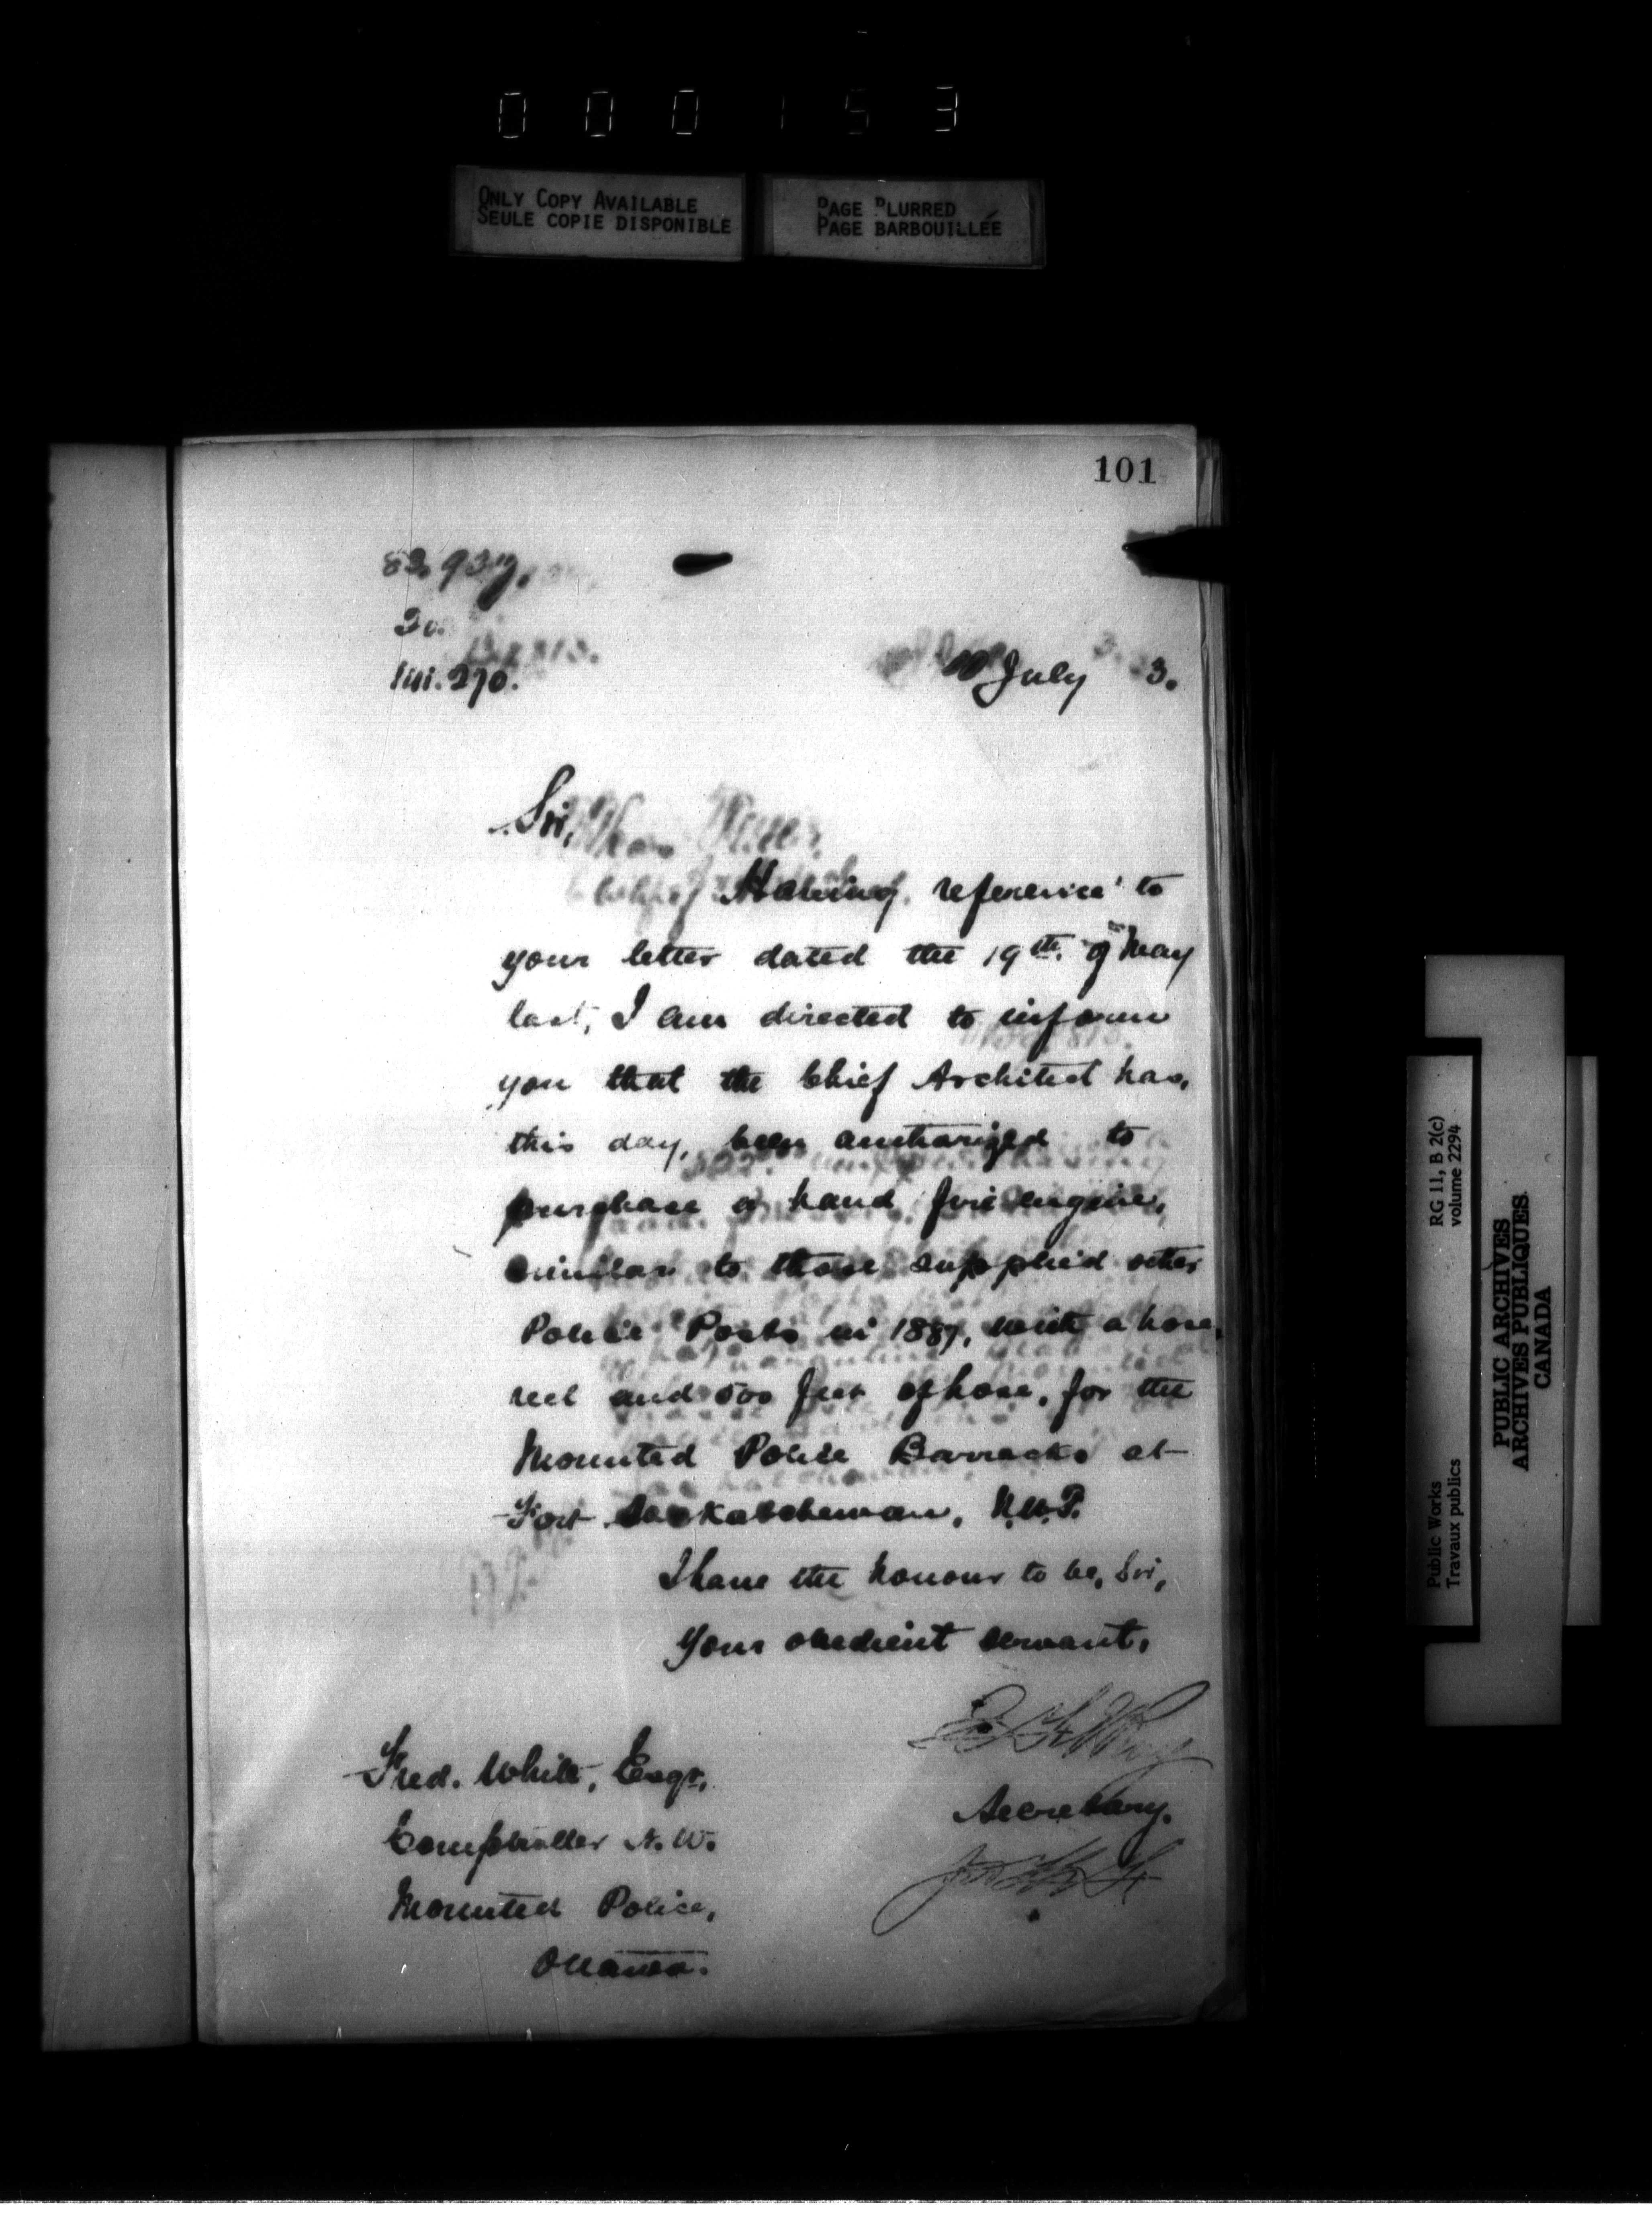 000153
ONLY COPY AVAILABLE
SEULE COPIE DISPONIBLE
PAGE BLURRED
PAGE BARBOUILLÉE
101
83.937.
270.
July 3.
Sir,
Having reference to
your letter dated the 19th. of May
last, I am directed to inform
you that the Chief Architect has,
this day, been authorized to
purchase a hand fire engine,
similar to those supplied other
Police Posts in 1887, with a hose
reel and 500 feet of hose, for the
Mounted Police Barracks at
Fort Saskatchewan, N.W.T.
I have the honour to be, Sir,
Your obedient servant,
Secretary.
Fred. White, Esqr,
Comptroller N.W.
Mounted Police,
Ottawa.
Public Works
Travaux publics
RG 11, B 2(c)
volume 2294
PUBLIC ARCHIVES
ARCHIVES PUBLIQUES
CANADA